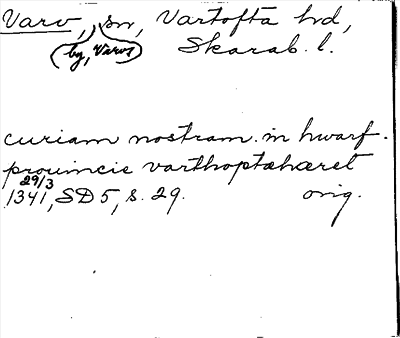 Varv, sn, Vartofta hd,
(by, Varvs) Skarab. l.
curiam nostram in hwarf.
prouincie varthoptæhæret
29/3
1341, SD 5, s. 29. orig.